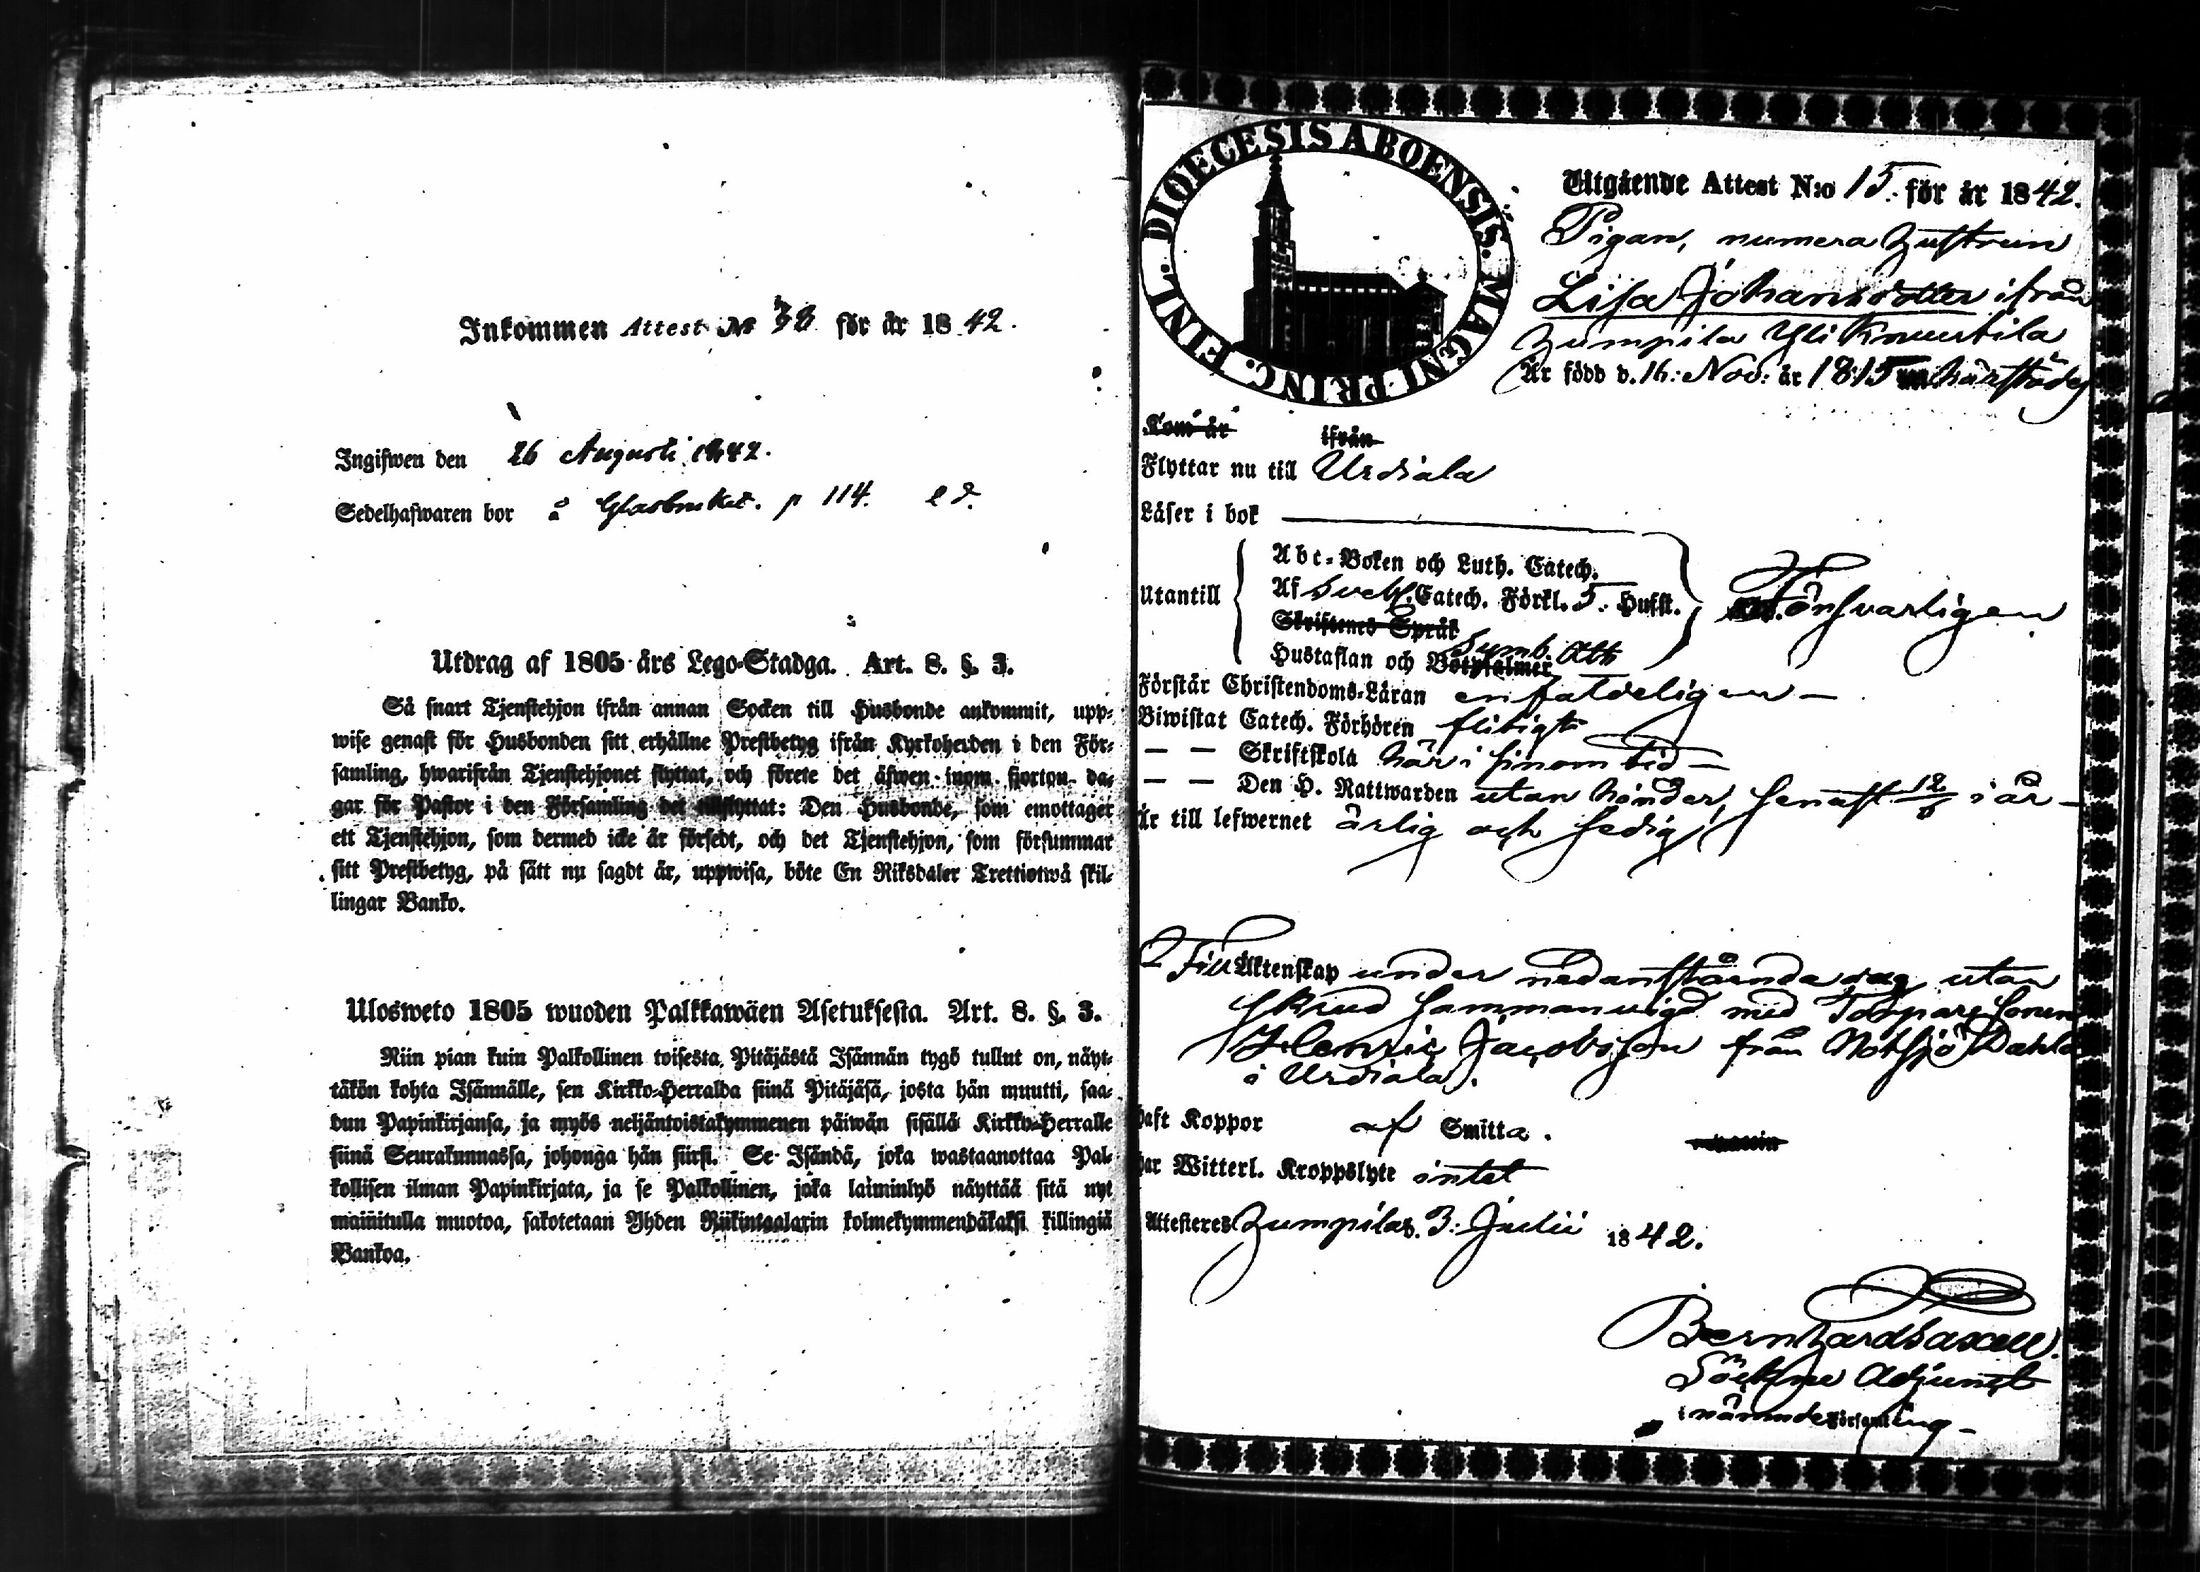 Inkommen Attest № 38 för år 1842.
Ingifwen den 26 Augusti 1842.
Sedelhafwaren bor å Glasbruket. p 114.
Utdrag af 1805 års Lego-Stadga. Art. 8. §. 3.
Så snart Tjenstehjon ifrån annan Socken till Husbonde ankommit, upp-
wise genast för Husbonden sitt erhållne Prestbetyg ifrån Kyrkoherden i den För-
samling, hwarifrån Tjenstehjonet flyttat, och förete det äfwen inom fjorton da-
gar för Pastor i den Församling det tillflyttat: Den Husbonde, som emottager
ett Tjenstehjon, som dermed icke är försedt, och det Tjenstehjon, som försummar
sitt Prestbetyg, på sätt nu sagdt är, uppwisa, böte En Riksdaler Trettiotwå skil-
lingar Banko.
Ulosweto 1805 wuoden Palkkawäen Asetuksesta. Art. 8. §. 3.
Niin pian kuin Palkollinen toisesta Pitäjästä Isännän tygö tullut on, näyt-
täkön kohta Isännälle, sen Kirkko-Herralda siinä Pitäjäsä, josta hän muutti, saa-
dun Papinkirjansa, ja myös neljäntoistakymmenen päiwän sisällä Kirkko-Herralle
siinä Seurakunnassa, johonga hän siirsi. Se Isändä, joka wastaanottaa Pal-
kollisen ilman Papinkirjata, ja se Palkollinen, joka laiminlyö näyttää sitä nyt
mainitulla muotoa, sakotetaan Yhden Riikintaalarin kolmekymmendäkaksi killingiä
Bankoa.
DIOECESIS ABOENSIS. MAGNI PRINC. FINL.
Utgående Attest N:o 15. för år 1842.
Pigan, numera hustrun
Lisa Johansdotter ifrån
Humpila Yli
Är född d. 16: Nov: år 1815 härstädes
Kom år ifrån
Flyttar nu till Urdiala
Läser i bok
Abc-Boken och Luth. Catech.
Utantill Af Catech. Förkl. 5. Hufst. Försvarligen
Skriftenes Språk
Hustaflan och Botpsalmer Symb. Ath
Förstår Christendoms-Läran enfaldeligen
Biwistat Catech. Förhören flitigt
— — Skriftskola här i sinom tid
— — Den H. Nattwarden utan hinder, senast 12/6 i år
Är till lefwernet ärlig och sedig;
Till Äktenskap under nedanstående dag utan
skrud sammanvigd med Torparesonen
Henric Jacobsson från Notsjö Dahla
i Urdiala.
haft Koppor af Smitta.
har Witterl. Kroppslyte intet
Attesteres Humpila d. 3: Julii 1842.
Bernhard Saxell.
Sockne Adjunct
i nämnde Församling